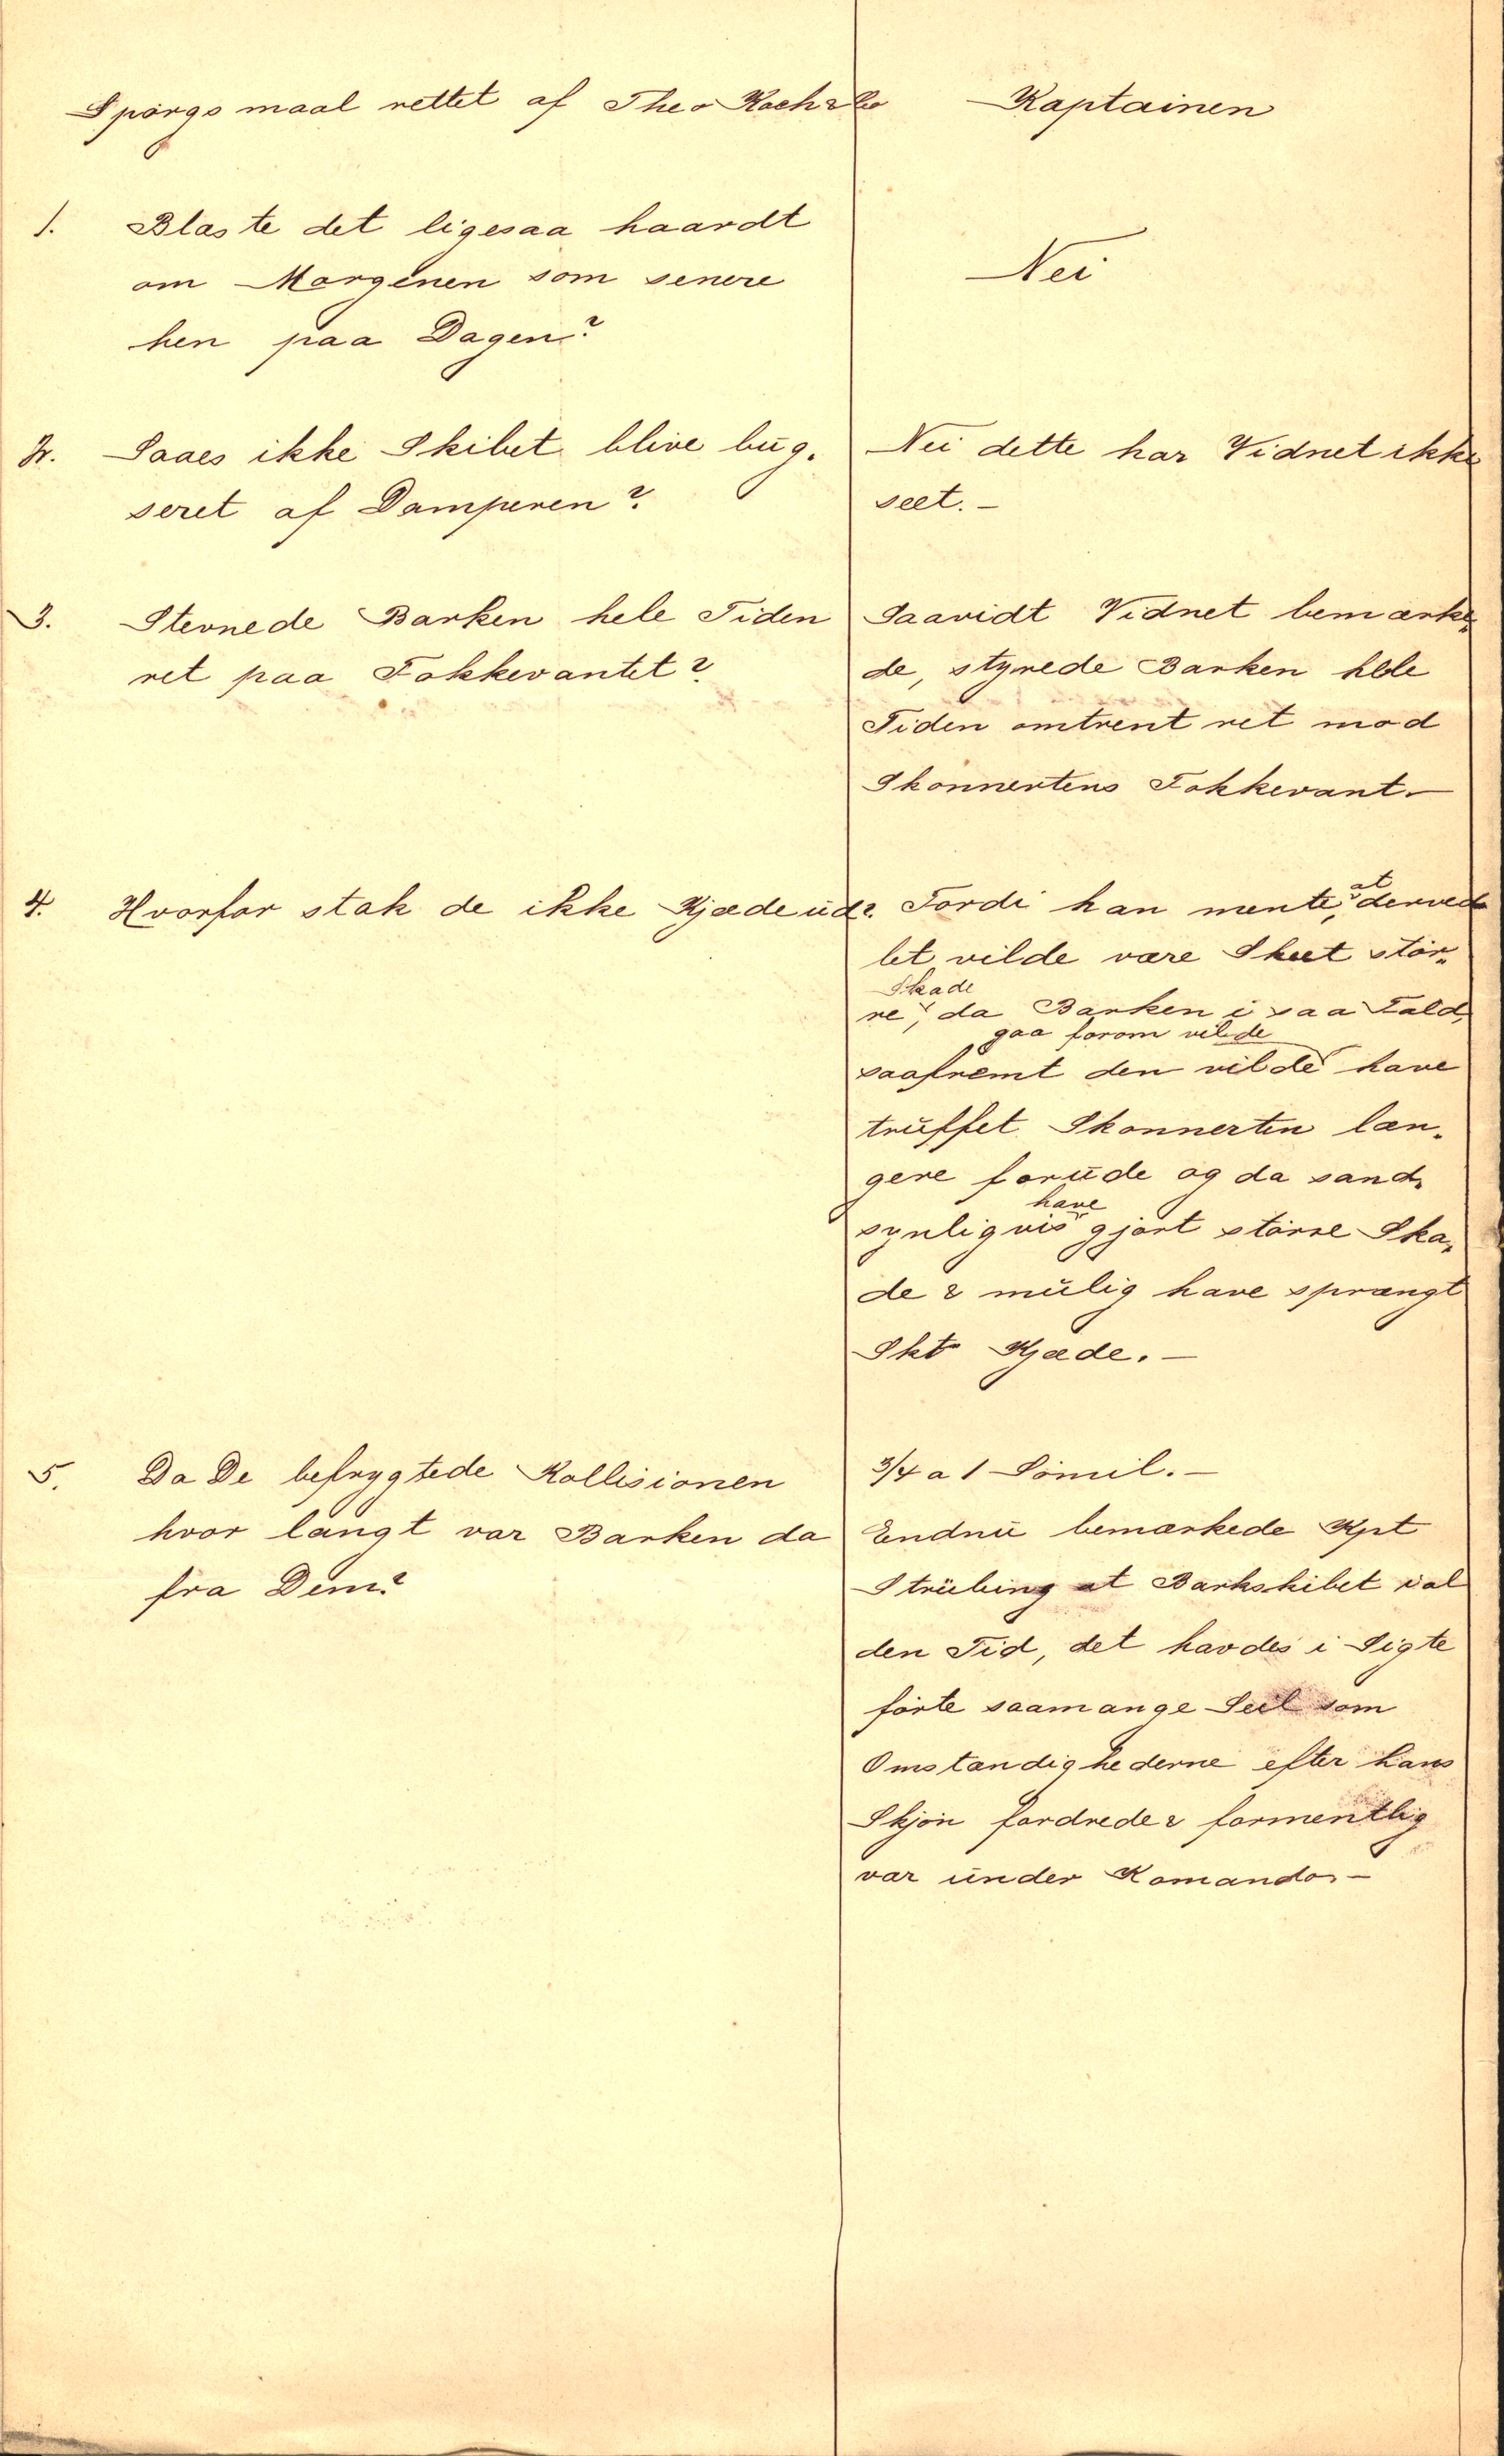 Spørgsmaal rettet af Theo Koch & Co
Kaptainen
1. Blæste det ligesaa haardt
om Morgenen som senere
hen paa Dagen?
Nei
2. Saaes ikke Skibet blive bug-
seret af Damperen?
Nei dette har Vidnet ikke
seet. -
3. Stevnede Barken hele Tiden
ret paa Fokkevantet?
Saavidt Vidnet bemærke-
de, styrede Barken hele
Tiden omtrent ret mod
Skonnertens Fokkevant. -
4. Hvorfor stak de ikke Kjæde ud?
Fordi han mente, at derved
let vilde være Skeet stør-
re Skade, da Barken i saa Fald,
saafremt den vilde gaa forom vilde have
truffet Skonnerten læn-
gere forude og da sand-
synligvis have gjort større Ska-
de & mulig have sprængt
Skt Kjæde. -
5. Da De befrygtede Kollisionen
hvor langt var Barken da
fra Dem?
3/4 a 1 Sømil. -
Endnu bemærkede Kpt
Strübing at Barkskibet i al
den Tid, det havdes i Sigte
førte saamange Seil som
Omstændighederne efter hans
Skjøn fordrede & formentlig
var under Komando. -